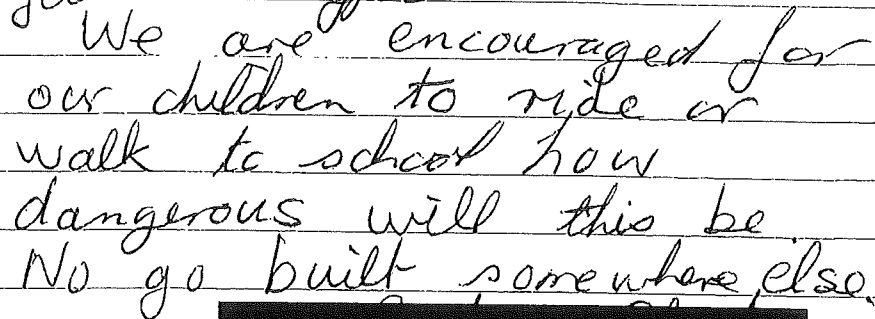 We are encouraged for
our children to ride or
walk to school how
dangerous will this be.
No go built somewhere else.